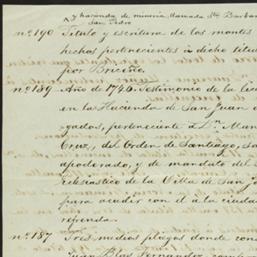 y hacienda de mineria llamada Sta Barbara
San Pedro
nº 190 Titulo y escritura de los montes
hechas pertenecientes á dicho titu
por Briceño.
nº 189. Año de 1746. Testimonio de la
en la Hacienda de San Juan
gados, perteneciente á Dn. Man
Cruz, del Orden de Santiago, su
apoderado, y de mandato del
eclesiastico de la Villa de San J
para acudir con el a la ciuda
referida.
nº 187 Tres medios pliegos donde con
Juan Blas Fernandez